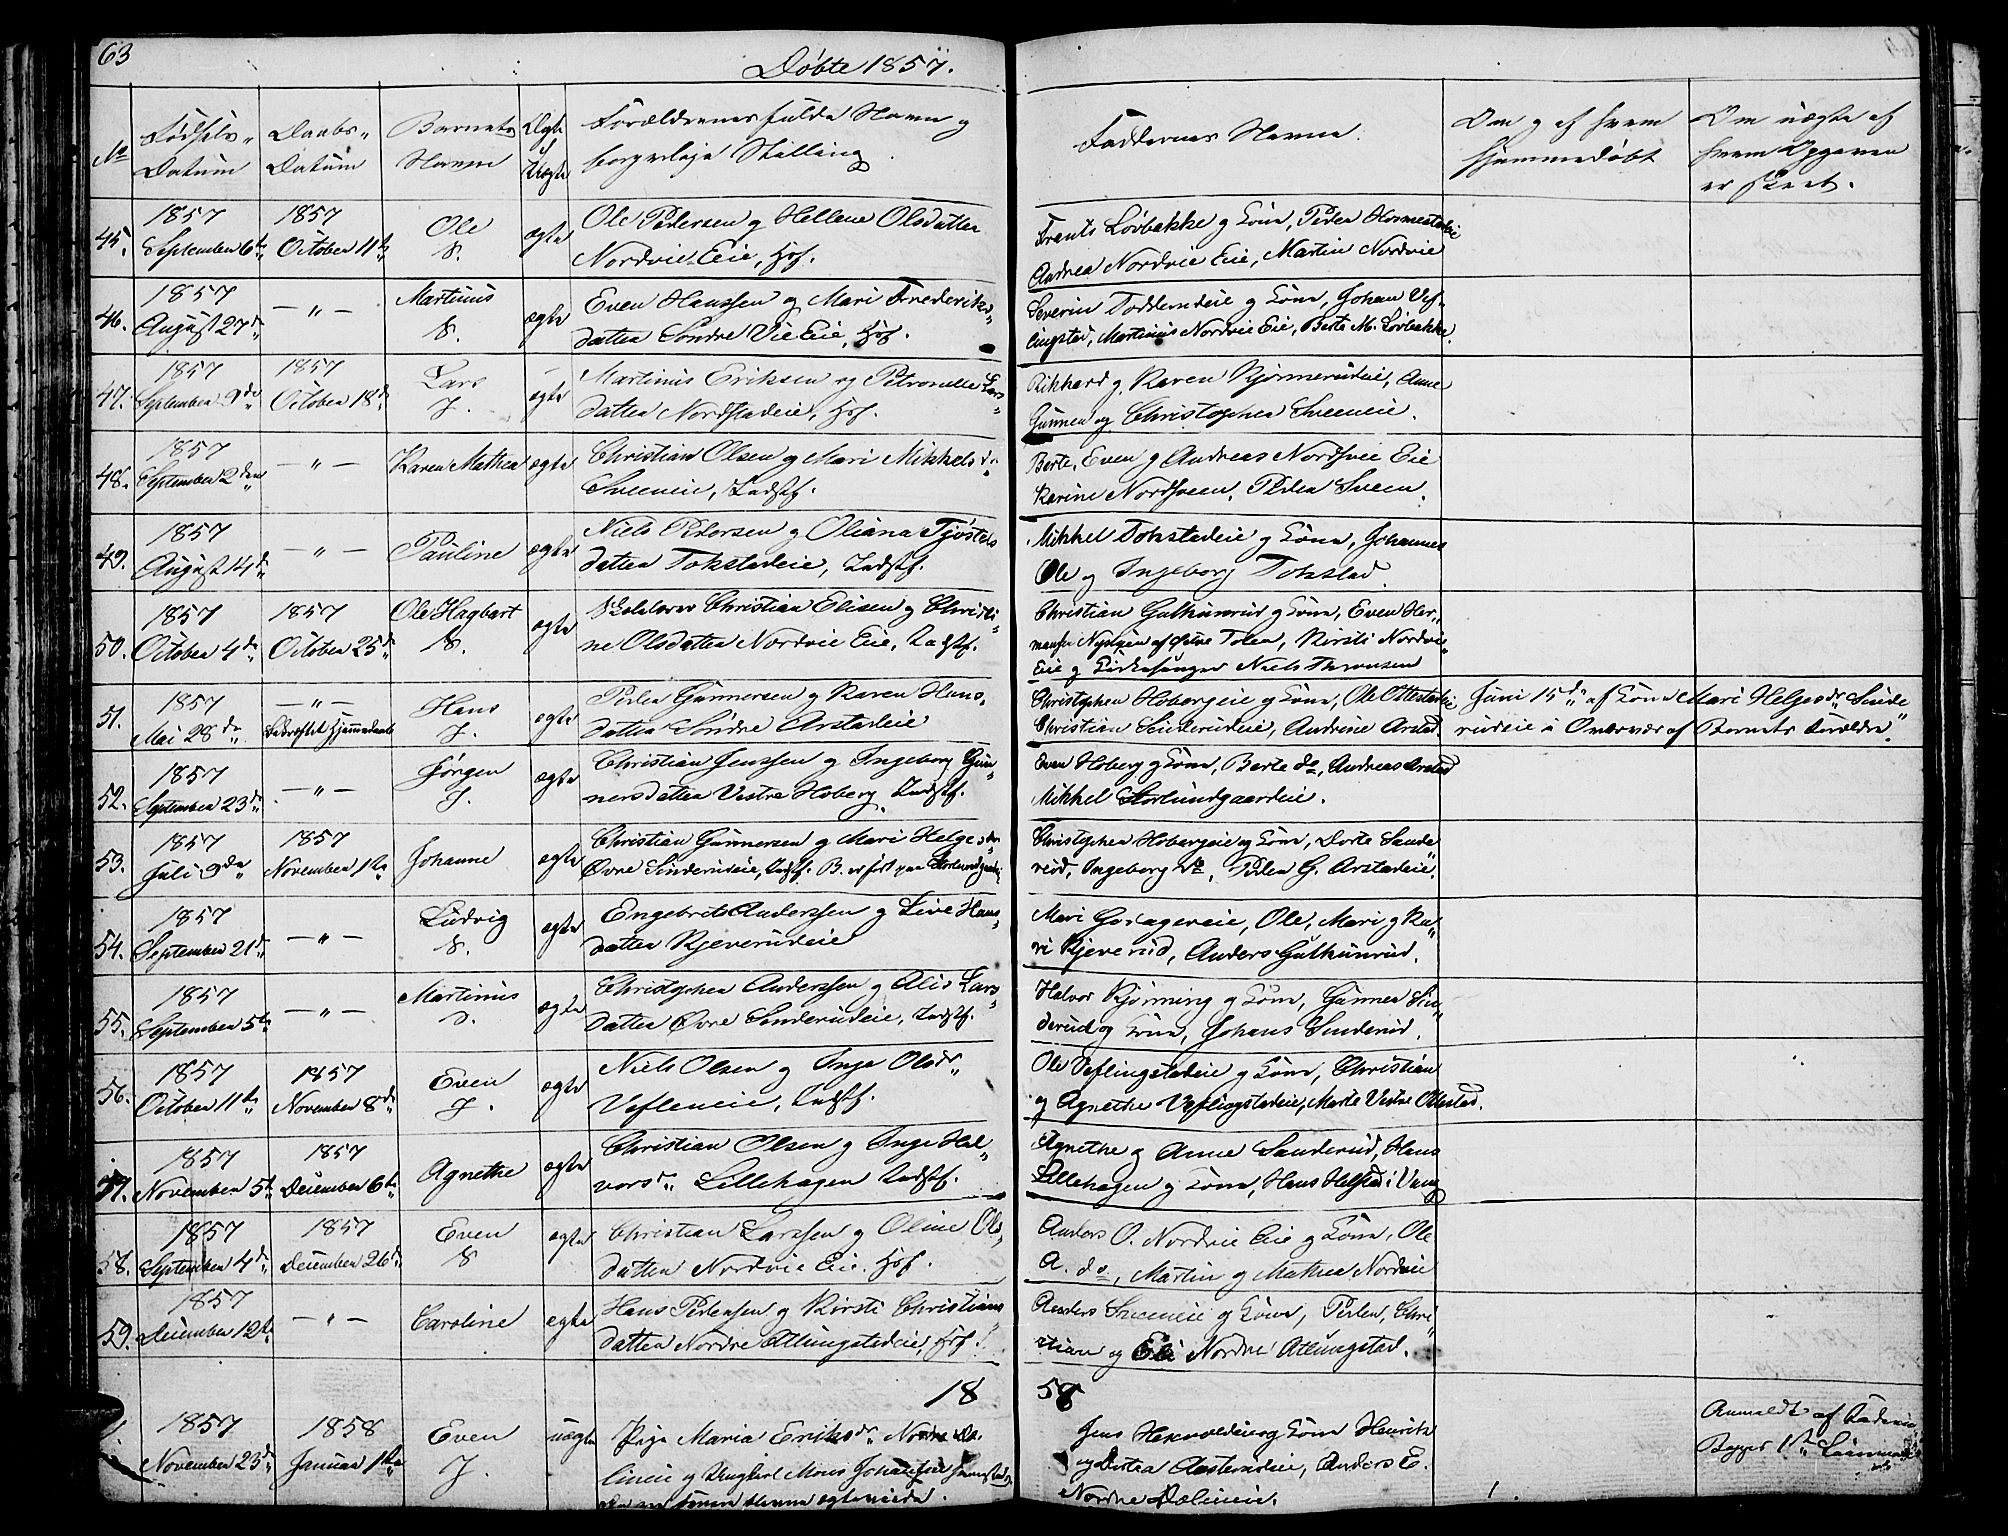 63
Døbte 1857.
No
Fødsels Datum
Daabs Datum
Barnets Navn
Ægte el. Uægte
Forældrenes fulde Navn og borgerlige Stilling.
Faddernes Navne.
Om og af hvem hjemmedøbt
Om uægte af hvem Opgaven er skeet.
45. 1857 September 6te 1857 October 11te Ole S. ægte Ole Pedersen og Hellene Olsdatter
Nordvie Eie, Hof.
Frants Løvbakke og Kone, Peder Hosmestadeie
Andrea Nordvie Eie, Martin Nordvie
46. 1857 August 27de — " — Martinus S. ægte Even Hanssen og Mari Frederiks
datter Søndre Vie Eie, Hof.
Severin Toddernd eie og Kone, Johan Vef
lingstad, Martinus Nordvie Eie, Berte M. Løvbakke.
47. 1857 September 9de 1857 October 18de Lars J. ægte Martinus Eriksen og Petronelle Lars
datter Nordstadeie, Hof.
Rikhard og Karen Kjørmerudeie, Anne
Gunner og Christopher Sveeneie.
48. 1857 September 2den — " — Karen Mathea ægte Christian Olsen og Mari Mikkelsdr
Sveeneie, Indstf.
Berte, Even og Andreas Nordsvee Eie
Karine Nordsveen, Peder Sveen.
49. 1857 August 14de — " — Pauline ægte Niels Pedersen og Oliana Tjøstels
datter Tokstadeie, Indstf.
Mikkel Tokstadeie og Kone, Johannes
Ole og Ingeborg Tokstad.
50. 1857 October 4de 1857 October 25de Ole Hagbart S. ægte Skolelærer Christian Elisen og Christi
ne Olsdatter Nordvie Eie, Indstf.
Christian Gulhunrud og Kone, Even Her
mansen af Østre Toten, Kirsti Nordvie
Eie og Kirkesanger Niels Thronsen
51. 1857 Mai 28de — " — Bekræftet Hjemmedaab Hans J. ægte Peder Gunnersen og Karen Hans
datter Søndre Arstadeie
Christopher Hobergeie og Kone, Ole Ottestadeie
Christian Sinderudeie, Andrine Arstad
Juni 15de af Kone Mari Helgesdr Sinde
rudeie i Overvær af Barnets Forældre.
52. 1857 September 23de — " — Jørgen J. ægte Christian Jenssen og Ingeborg Gun
nersdatter Vestre Hoberg, Indstf.
Even Hoberg og Kone, Berte do, Andreas Arstad
Mikkel Storlundgaardeie.
53. 1857 Juli 9de 1857 November 1te Johanne ægte Christian Gunnersen og Mari Helgesdr
Øvre Sinderudeie, Indstf. B. er født paa
Christopher Hobergeie og Kone, Dorte Sande
rud, Ingeborg do, Peder G. Arstadeie.
54. 1857 September 21de — " — Ludvig S. ægte Engebret Anderssen og Live Hans
datter Kjeverudeie
Mari Ole, Mari og Ka
ri Kjeverud, Anders Gulhunrud.
55. 1857 September 5te — " — Martinus S. ægte Christopher Anderssen og Alis Lars
datter Øvre Sinderudeie, Indstf.
Halvor Kjørming og Kone, Gunner Sin
derud og Kone, Johans Sinderud.
56. 1857 October 11te 1857 November 8de Even J. ægte Niels Olsen og Inge Olsdr
Vefleneie, Indstf.
Ole Veflingstadeie og Kone, Christian
og Agnethe Veflingstadeie, Marte Vestre Ottestad.
57. 1857 November 5te 1857 December 6te Agnethe ægte Christian Olsen og Inge Hal
vorsdr Lillehagen Indstf.
Agnethe og Anne Sanderud, Hans
Lillehagen og Kone, Hans Helstad i Vang
58. 1857 September 4de 1857 December 26de Even S ægte Christian Larssen og Oline Ols
datter Nordvie Eie. Hof.
Anders O. Nordvie Eie og Kone, Ole
A. do, Martin og Mathea Nordvie
59. 1857 December 12te — " — Caroline ægte Hans Pedersen og Kirsti Christians
datter Nordre Atlungstadeie, Hof.
Anders Sveeneie og Kone, Peder, Chri
stian og Eli Nordre Atlungstad.
18 58
1857 November 23de 1858 Januar 1te Even J. uægte Pige Maria Eriksdr Nordre Dæ
lineie og Ungkarl Mons Johannessen
Jens og Kone Henrik
og Anders E.
Nordre Dælineie.
Anmeldt af Fader
1te